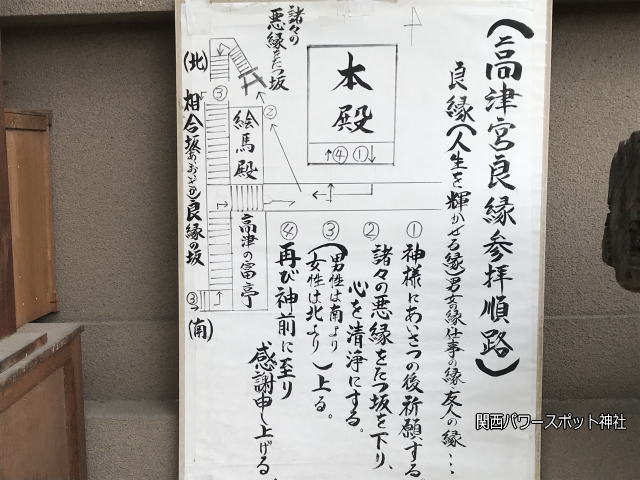 （高津宮良縁参拝順路）
良縁（人生を輝かせる縁）男女の縁仕事の縁・友人の縁・・・
①神様にあいさつの後祈願する。
②諸々の悪縁をたつ坂を下り、
心を清浄にする。
③（男性は南より
女性は北より）上る。
④再び神前に至り
感謝申し上げる。
本殿
↑④①↓
諸々の
悪縁をたつ坂
②
絵馬殿
高津の富亭
(北)
③
相合坂(あいおいざか)良縁の坂
③
(南)
関西パワースポット神社